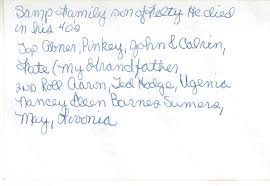 Samp Family son of Patty He died
in his 40's
Top Abner, Pinkey, John & Calvin,
Tate (my Grandfather
2nd Roll Aaron, Ted Hodge, Ugenia
Nancey Aleen Barnes Sumers,
May, Livonia